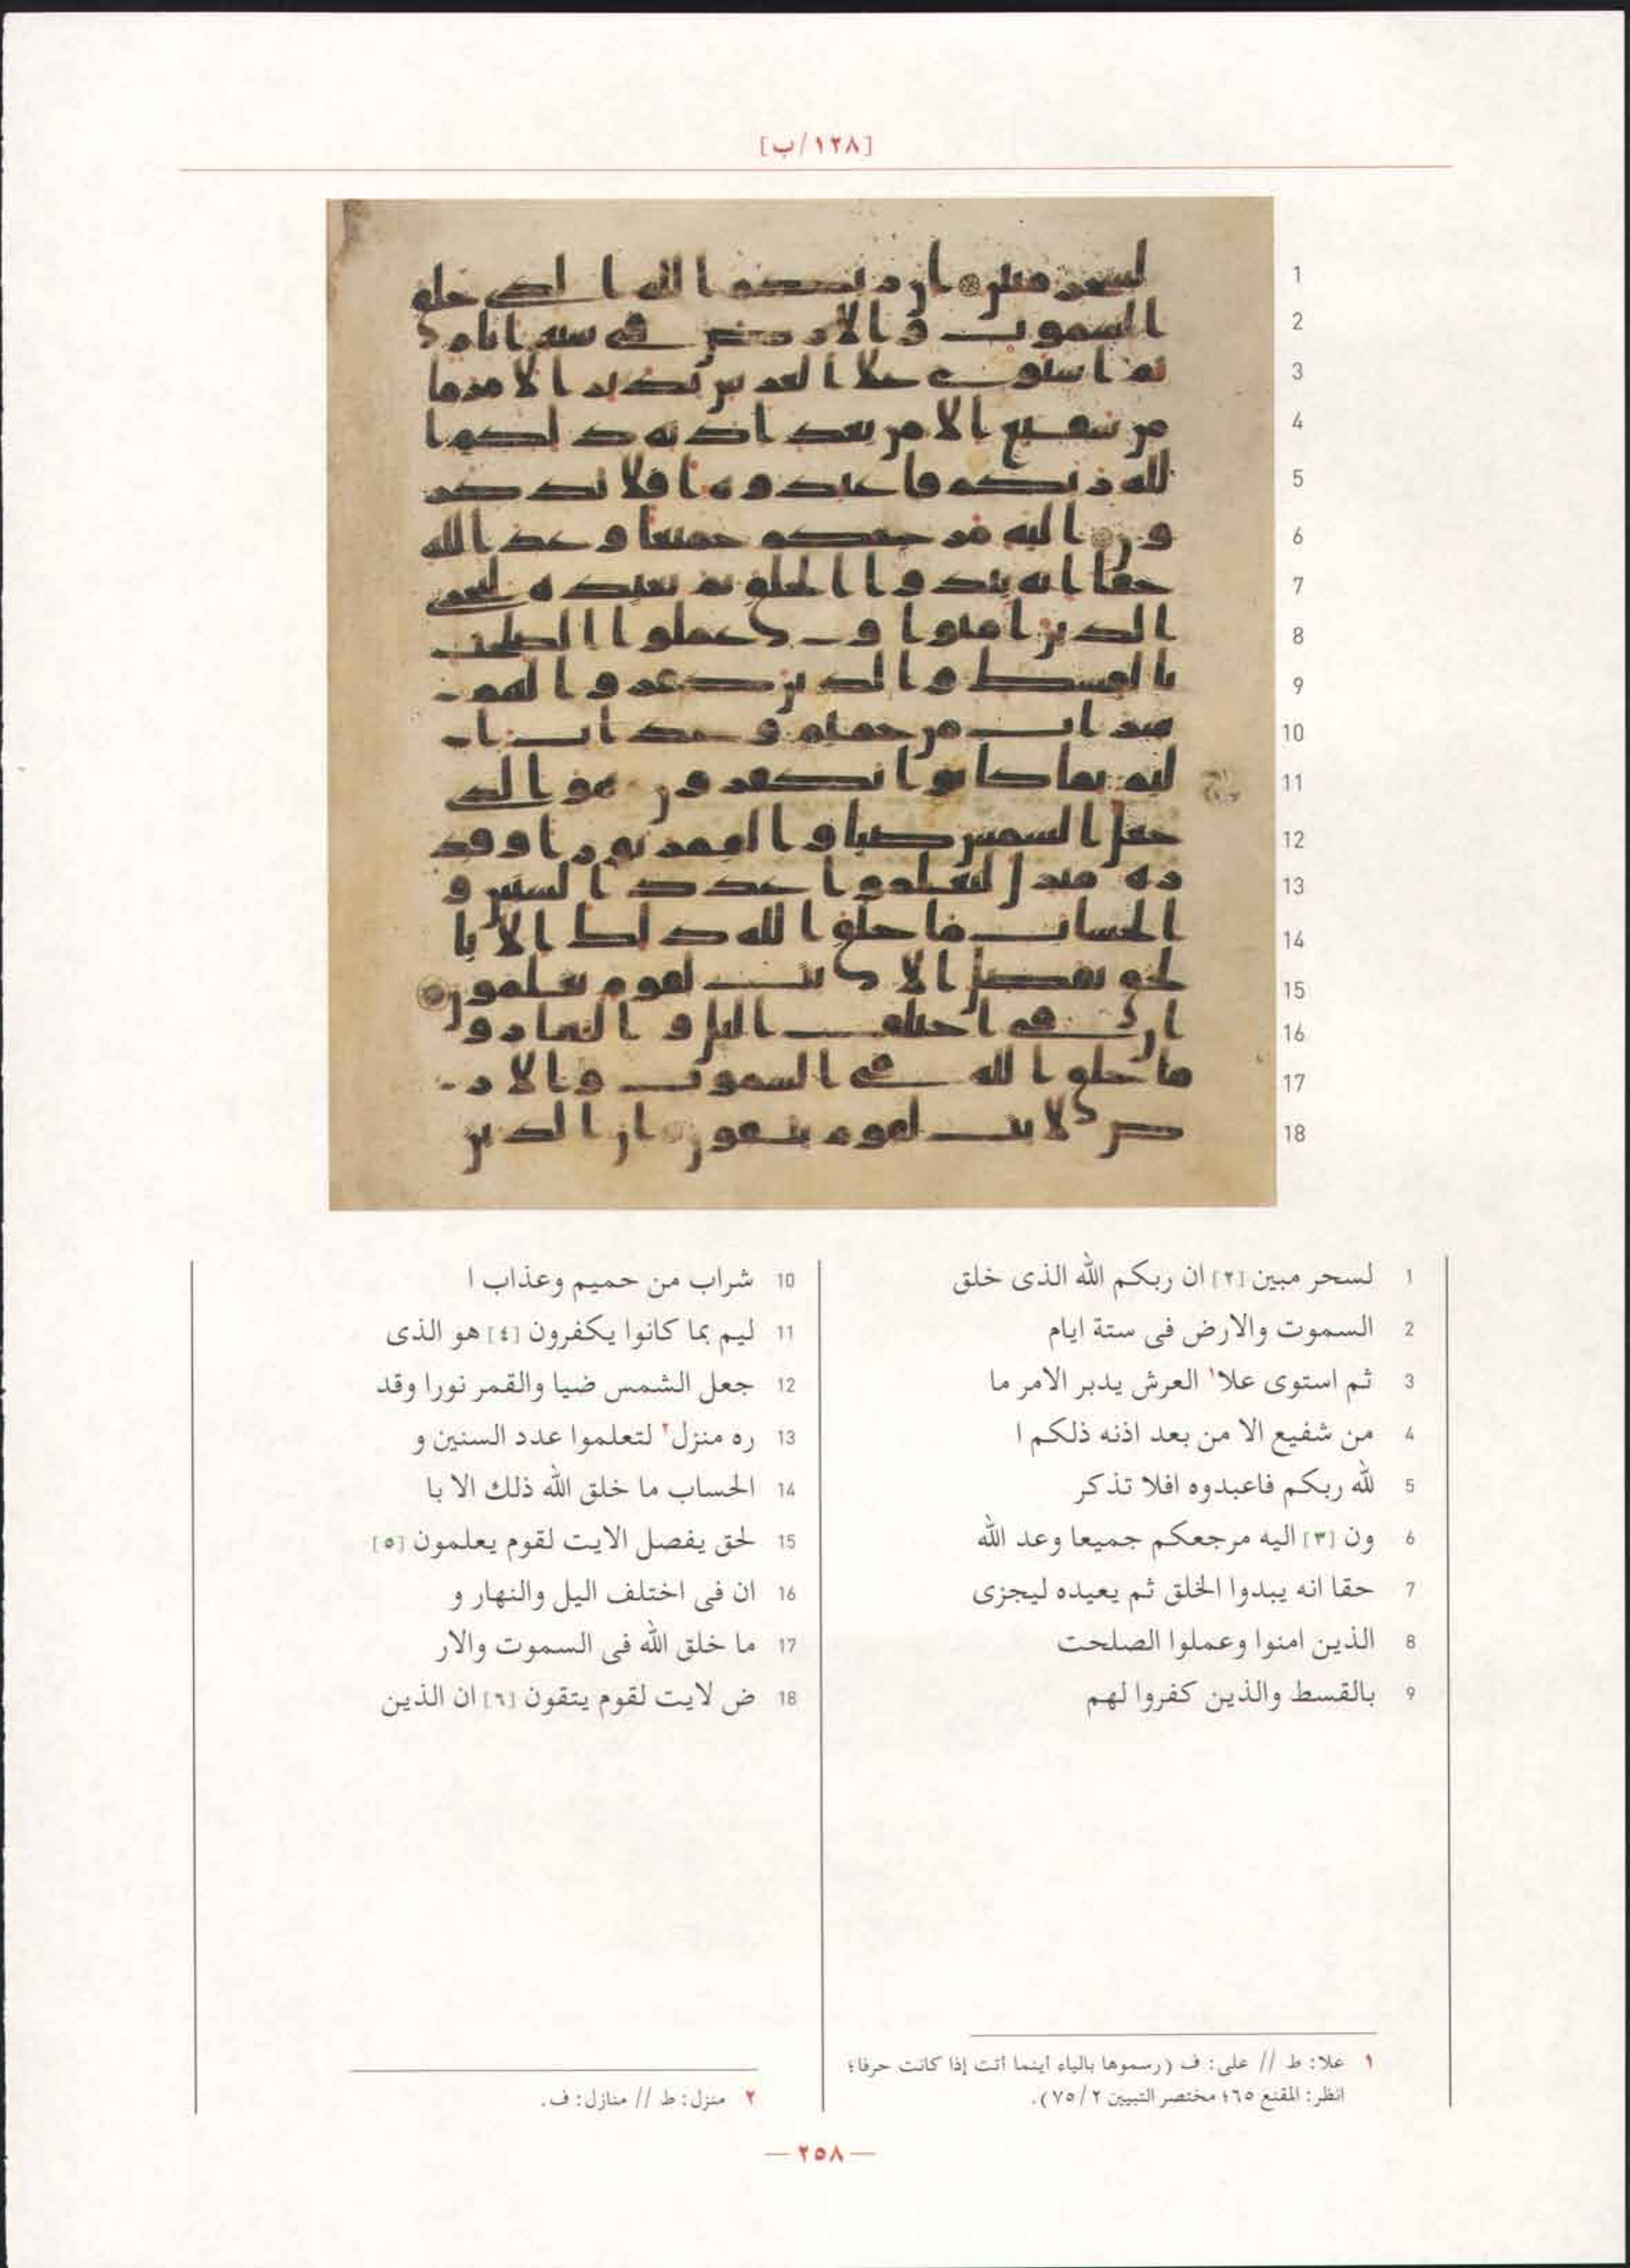 [١٢٨/ب]
1 لسحر مبين [٢] ان ربكم الله الذى خلق
2 السموت والارض فى ستة ايام
3 ثم استوى علا١ العرش يدبر الامر ما
4 من شفيع الا من بعد اذنه ذلكم ا
5 لله ربكم فاعبدوه افلا تذكر
6 ون [٣] اليه مرجعكم جميعا وعد الله
7 حقا انه يبدوا الخلق ثم يعيده ليجزى
8 الذين امنوا وعملوا الصلحت
9 بالقسط والذين كفروا لهم
10 شراب من حميم وعذاب ا
11 ليم بما كانوا يكفرون [٤] هو الذى
12 جعل الشمس ضيا والقمر نورا وقد
13 ره منزل٢ لتعلموا عدد السنين و
14 الحساب ما خلق الله ذلك الا با
15 لحق يفصل الايت لقوم يعلمون [٥]
16 ان فى اختلف اليل والنهار و
17 ما خلق الله فى السموت والار
18 ض لايت لقوم يتقون [٦] ان الذين
١ علا: ط // على: ف (رسموها بالياء أينما أتت إذا كانت حرفا؛
انظر: المقنع ٦٥؛ مختصر التبيين ٧٥/٢).
٢ منزل: ط // منازل: ف.
— ٢٥٨ —